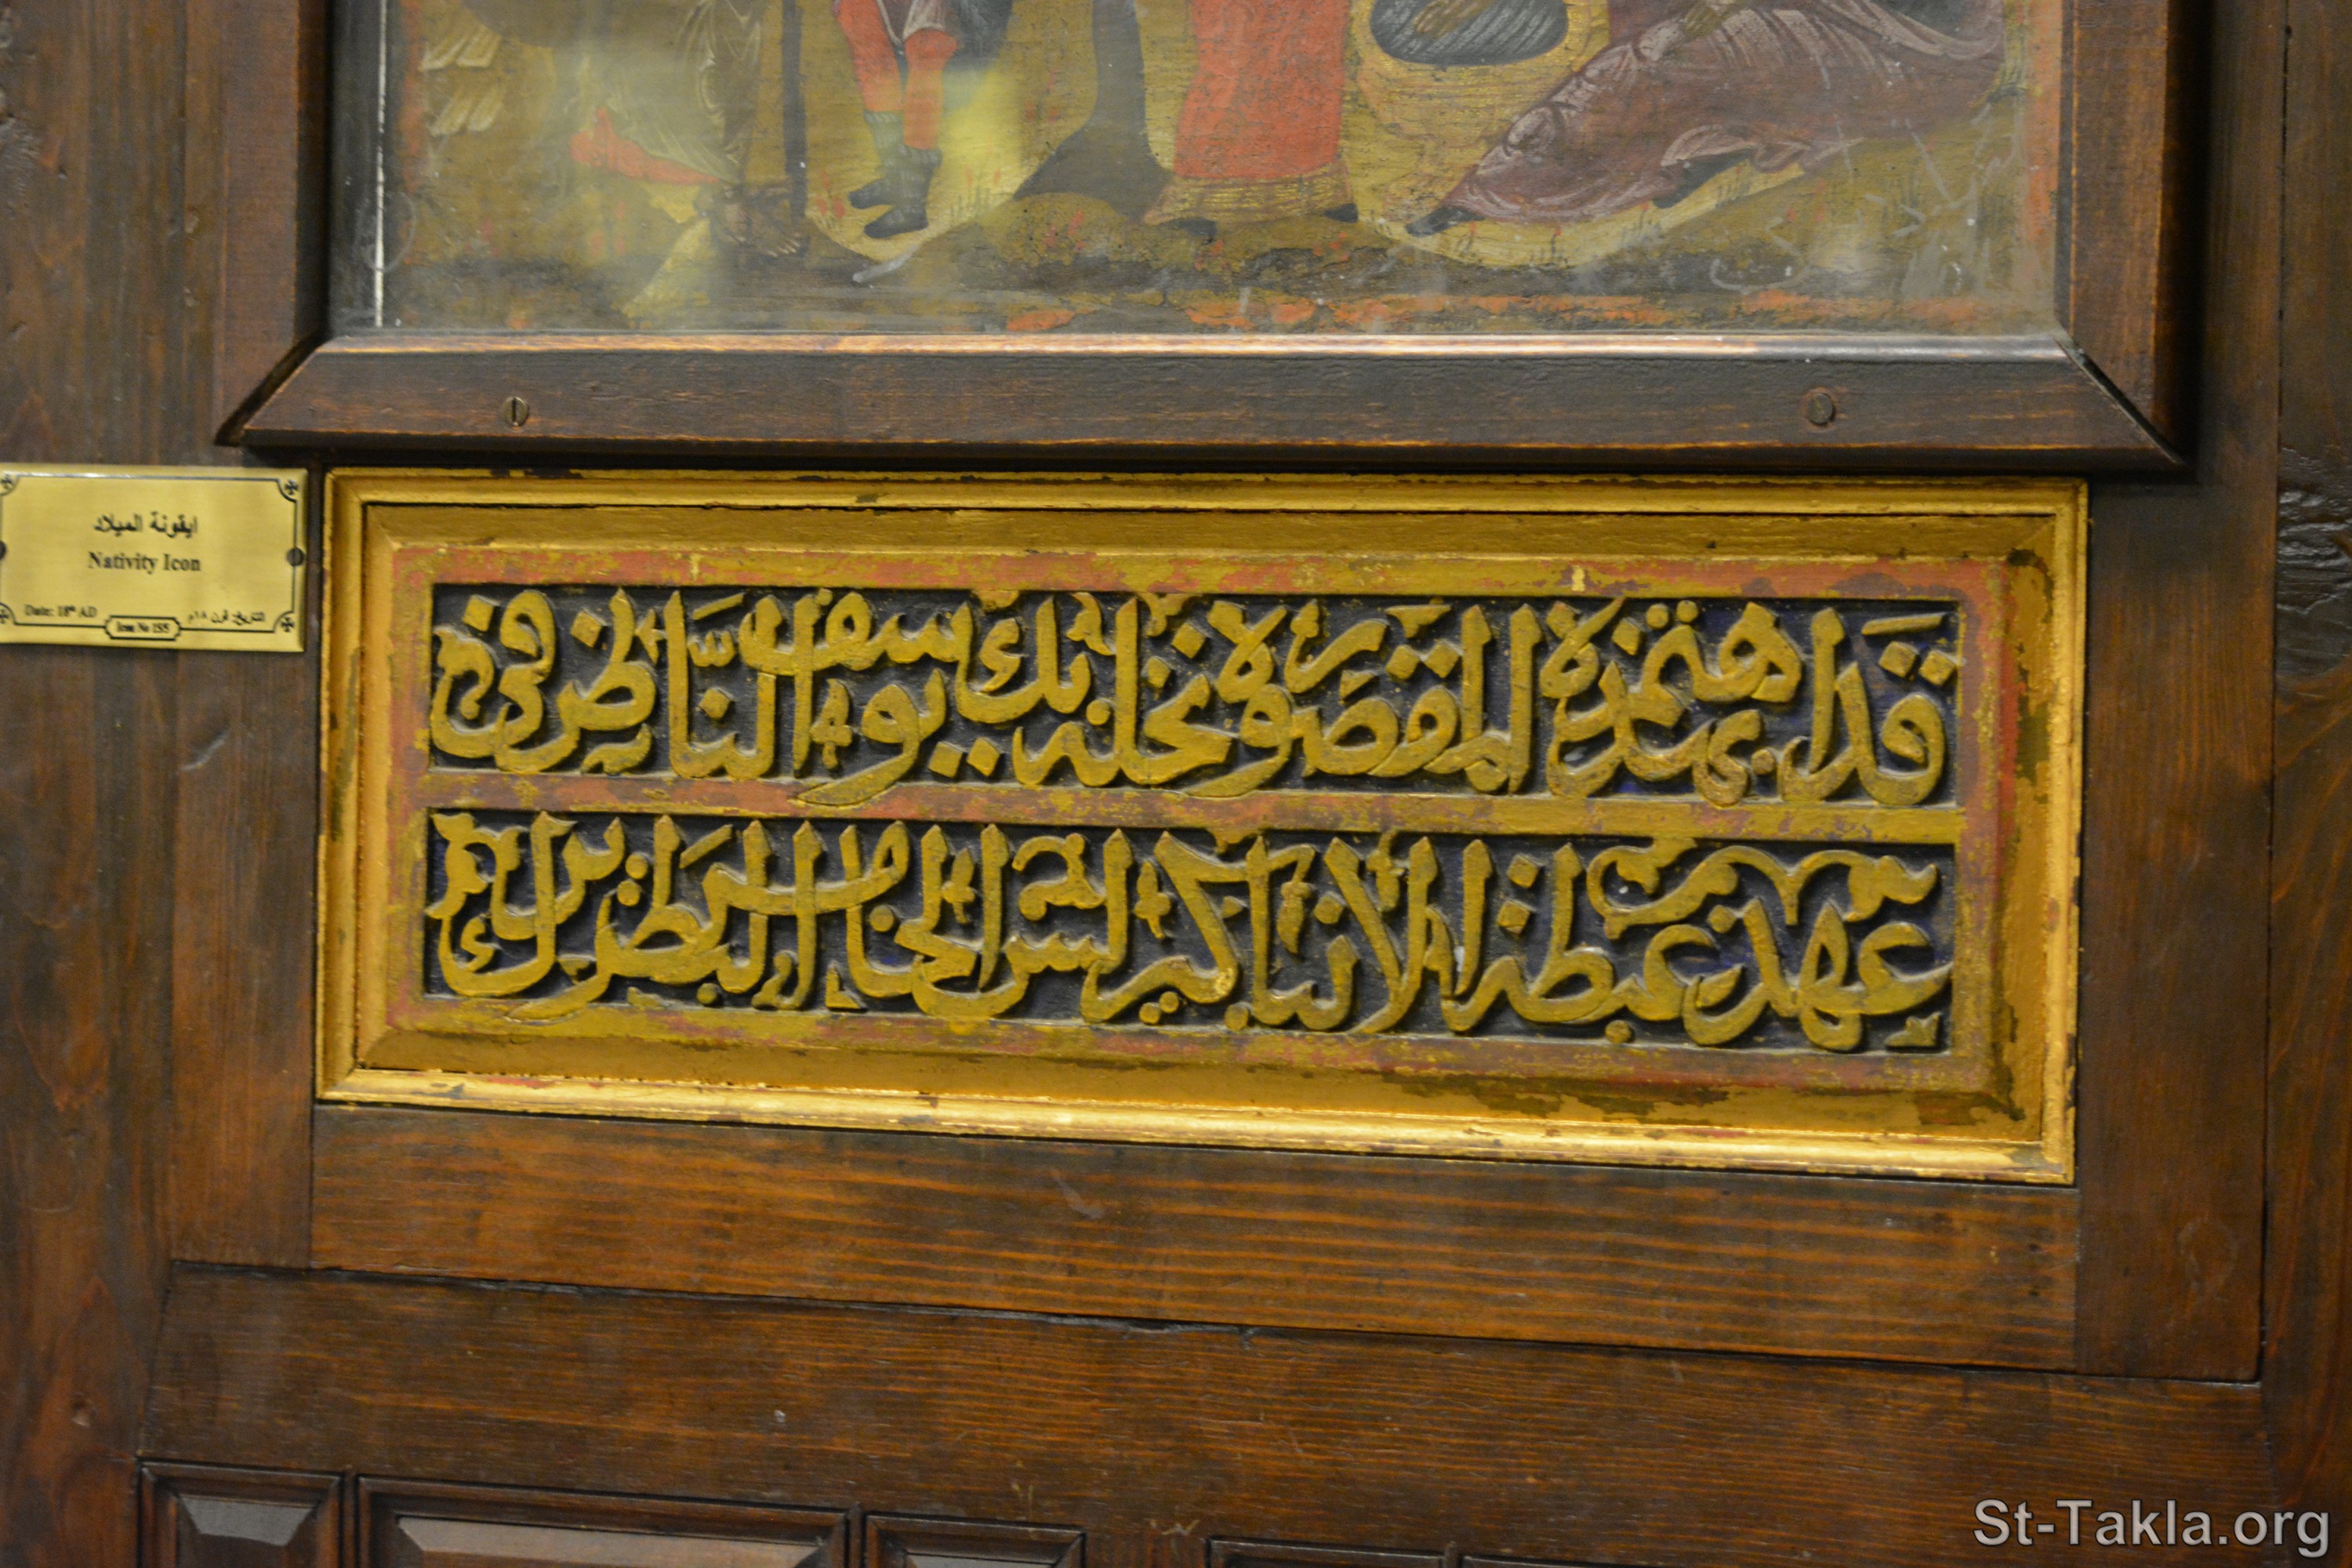 ايقونة الميلاد
Nativity Icon
Date: 18th AD
التاريخ: قرن ١٨م
Icon No
قد اهتم بهذه المقصوره نخله بك يوسف الناظر في
عهد غبطة الانبا كيرلس الخامس البطريرك
St-Takla.org